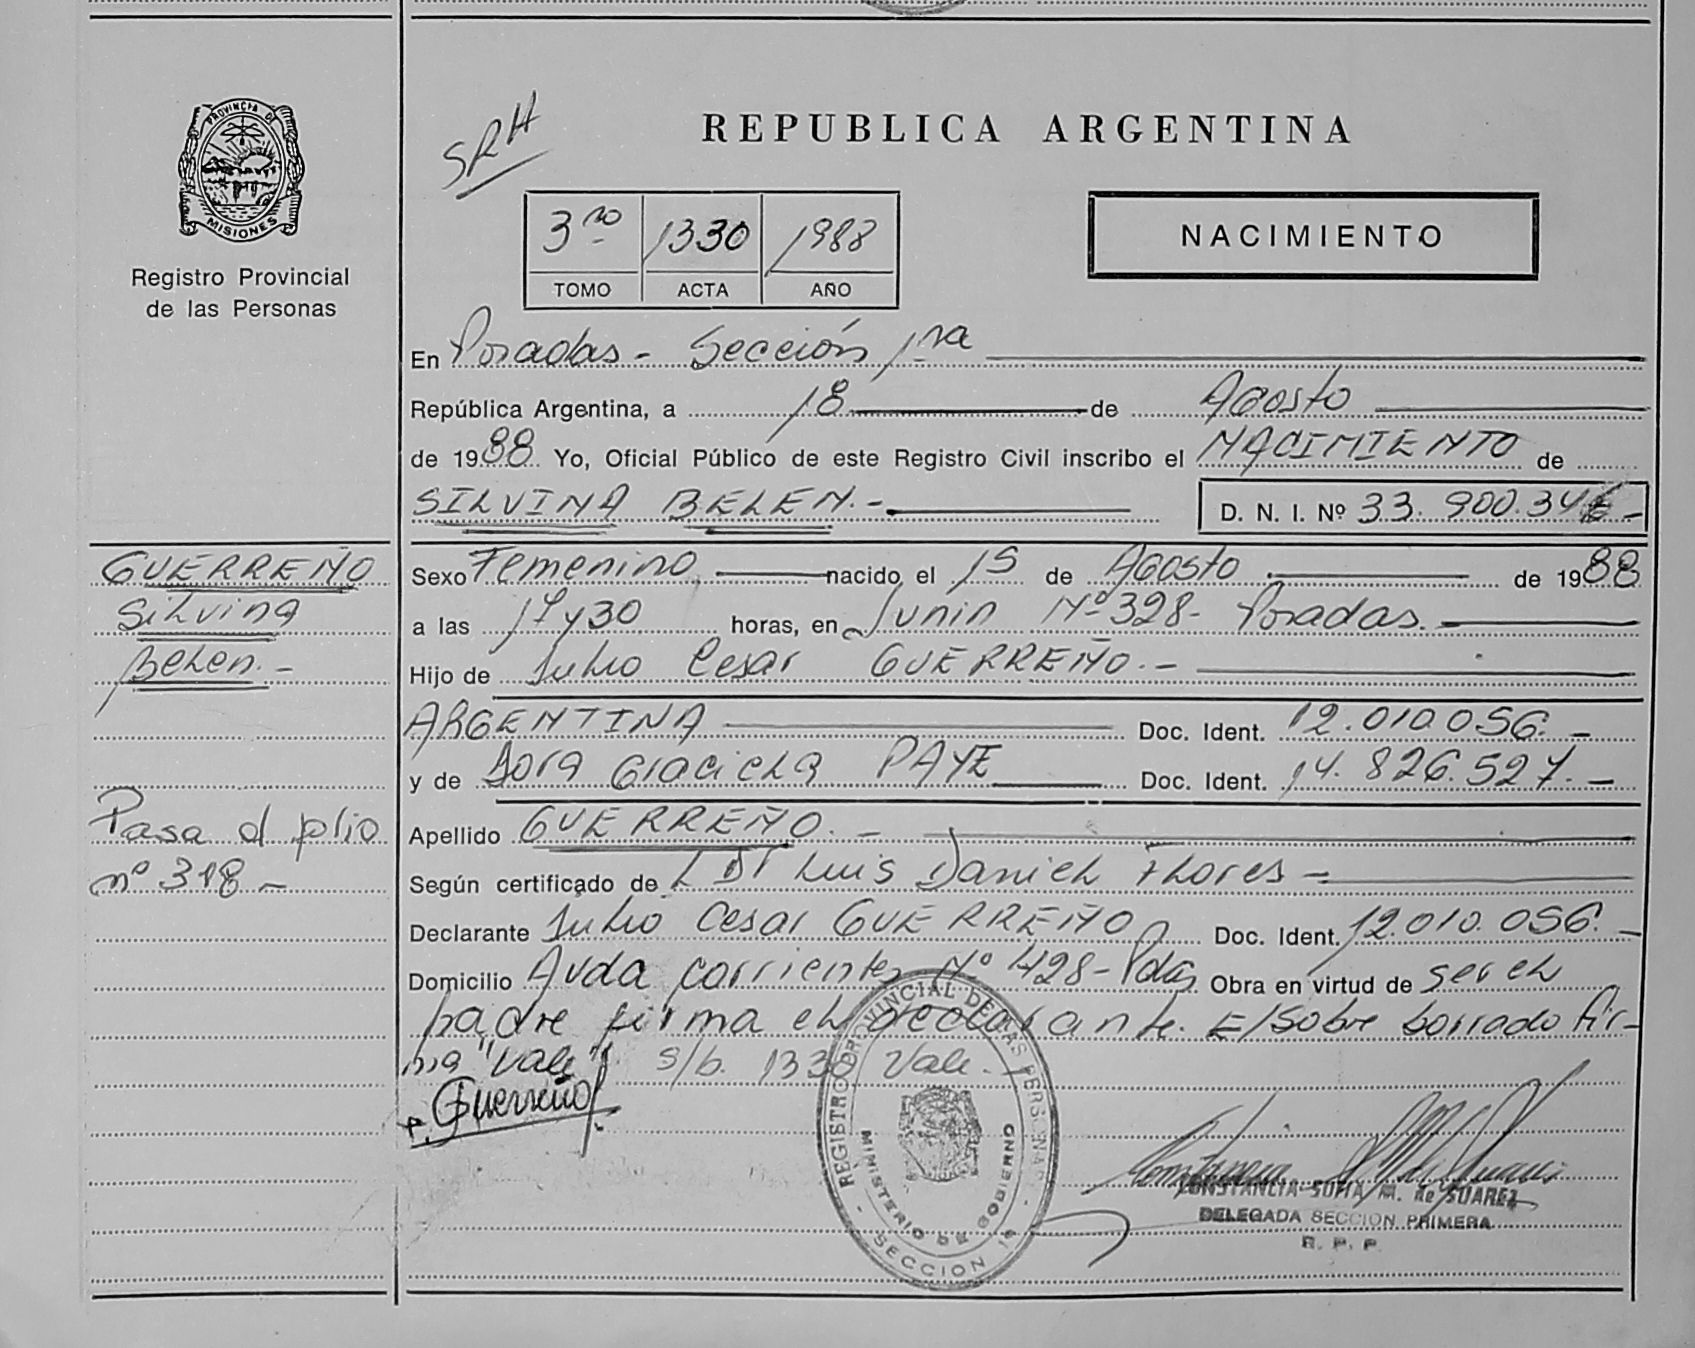 PROVINCIA DE
MISIONES
Registro Provincial
de las Personas
SRH
REPUBLICA ARGENTINA
3ro 1330 1988
TOMO ACTA AÑO
NACIMIENTO
En Posadas - Sección 1ra
República Argentina, a 18 de Agosto
de 1988 Yo, Oficial Público de este Registro Civil inscribo el NACIMIENTO de
SILVINA BELEN.- D. N. I. Nº 33.900.346-
GUERREÑO
Silvina
Belen.-
Pasa al folio
nº 318-
Sexo Femenino nacido el 15 de Agosto de 1988
a las 17 y 30 horas, en Junin Nº 328- Posadas.
Hijo de Julio Cesar GUERREÑO.-
ARGENTINA Doc. Ident. 12.010.056.-
y de Dora Graciela PAYE Doc. Ident. 14.826.527.-
Apellido GUERREÑO.-
Según certificado de L Dr Luis Daniel Flores-
Declarante Julio Cesar GUERREÑO Doc. Ident. 12.010.056.-
Domicilio Avda corrientes Nº 428-Pdas Obra en virtud de ser el
padre firma el declarante. E/Sobre borrado fir-
ma "Vale". s/b. 1330 Vale.-
Guerreño
REGISTRO PROVINCIAL DE LAS PERSONAS
MINISTERIO DE GOBIERNO
- SECCION 1ª -
CONSTANCIA SOFIA M. de SUAREZ
DELEGADA SECCION PRIMERA
R. P. P.